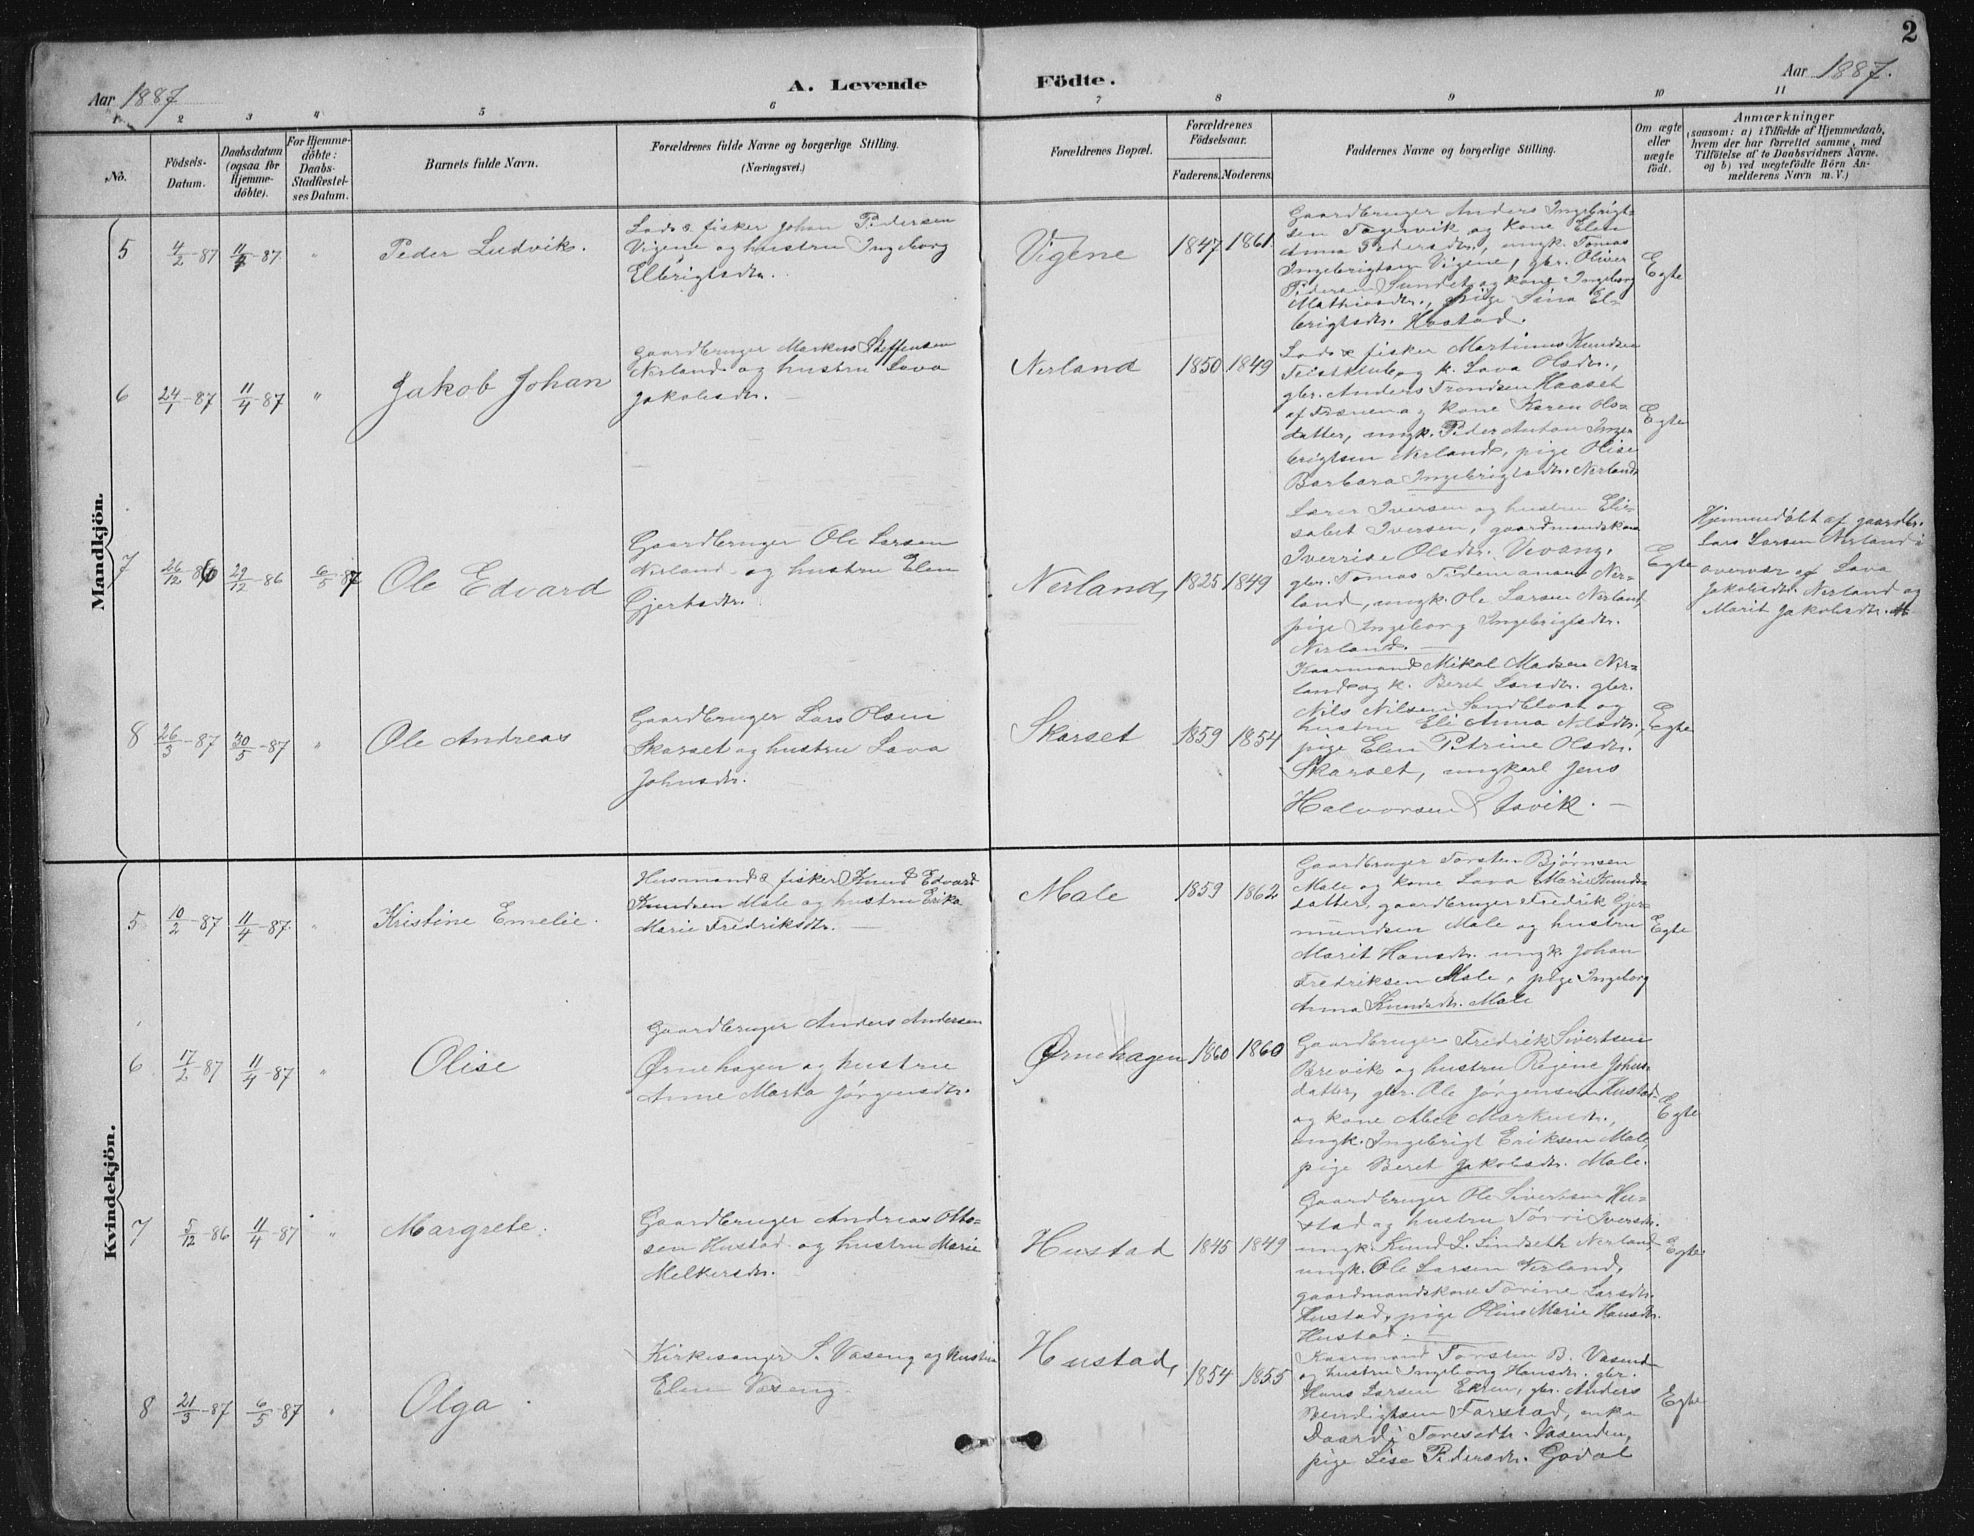 2
Aar 1887
A. Levende Födte.
Aar 1887.
1 2 3 4 5 6 7 8 9 10 11
No.
Födsels-Datum.
Daabsdatum (ogsaa for Hjemmedöbte).
For Hjemmedöbte: Daabs-Stadfæstelses Datum.
Barnets fulde Navn.
Forældrenes fulde Navne og borgerlige Stilling.
(Næringsvei.)
Forældrenes Bopæl.
Forældrenes Födselsaar.
Faderens. Moderens.
Faddernes Navne og borgerlige Stilling.
Om ægte eller uægte födt.
Anmærkninger
(saasom: a) i Tilfælde af Hjemmedaab, hvem der har forrettet samme, med Tilföielse af to Daabsvidners Navne, og b) ved uægtefödte Börn Anmelderens Navn m. V.)
Mandkjön.
5 4/2-87 11/4-87 " Peder Ludvik.
Lods & fisker Johan Pedersen
Vigene og hustru Ingeborg
Elbrigtsdtr.
Vigene 1847 1861
Gaardbruger Anders Ingebrigt-
sen Fagervik og kone Elen
Anna Pedersdtr., ungk. Tomas
Ingebrigtsen Vigene, gbr. Oliver
Pedersen Sundet og kone Ingeborg
Mathiasdtr., pige Sina El-
brigtsdtr. Hostad.
Egte
6 24/1-87 11/4-87 " Jakob Johan
Gaardbruger Markus Steffensen
Nerland og hustru Lava
Jakobsdtr.
Nerland 1850 1849
Lods & fisker Martinus Knudsen
Teistklub og k. Lava Olsdtr.,
gbr. Anders Trondsen Haaset
af Frænen og kone Karen Ols-
datter, ungk. Peder Anton Inge-
brigtsen Nerland, pige Olise
Barbara Ingebrigtsdtr. Nerland
Egte
7 26/12-86 29/12-86 6/5-87 Ole Edvard
Gaardbruger Ole Larsen
Nerland og hustru Elen
Gjertsdtr.
Nerland, 1825 1849
Lærer Iversen og hustru Elie-
sabet Iversen, gaardmandskone
Iverrise Olsdtr. Vevang,
gbr. Tomas Tidemansen Ner-
land, ungk. Ole Larsen Nerland,
pige Ingeborg Ingebrigtsdtr.
Nerland.
Egte
Hjemmedøbt af gaardbr.
Lars Larsen Nerland i
overvær af Lava
Jakobsdtr. Nerland og
Marit Jakobsdtr.
8 26/3-87 30/5-87 " Ole Andreas
Gaardbruger Lars Olsen
Skarset og hustru Lava
Johnsdtr.
Skarset 1859 1854
Kaarmand Mikal Madsen Ner-
land og k. Beret Larsdtr. gbr.
Nils Nilsen Sandblost og
hustru Eli Anna Nilsdtr.,
pige Elen Petrine Olsdtr.
Skarset, ungkarl Jens
Halvorsen Stavik.
Egte
Kvindekjön.
5 10/2-87 11/4-87. " Kristine Emelie.
Husmand & fisker Knud Edvard
Knudsen Male og hustru Erika
Marie Fredriksdtr.
Male 1859 1862
Gaardbruger Torsten Bjørnsen
Male og kone Lava Marie Knuds-
datter, gaardbruger Fredrik Gjer-
mundsen Male og hustru
Marit Hansdtr. ungk. Johan
Fredriksen Male, pige Ingeborg
Anna Knudsdtr. Male
Egte
6 17/2-87 11/4-87 " Olise
Gaardbruger Anders Andersen
Ørnehagen og hustru
Anne Marta Jørgensdtr.
Ørnehagen 1860 1860
Gaardbruger Fredrik Sivertsen
Brevik og hustru Regine Johns-
datter, gbr. Ole Jørgensen Hustad
og kone Abel Markusdtr.,
ungk. Ingebrigt Eriksen Male,
pige Beret Jakobsdtr. Male.
Egte
7 5/12-86 11/4-87 " Margrete.
Gaardbruger Andreas Otto-
sen Hustad og hustru Marie
Melkersdtr.
Hustad 1845 1849
Gaardbruger Ole Sivertsen Hu-
stad og hustru Iversdtr.
ungk. Knud L. Lindseth Nerland,
ungk. Ole Larsen Nerland,
gaardmandskone Torine Larsdtr.
Hustad, pige Oline Marie Hansdtr.
Hustad.
Egte
8 21/3-87 6/5-87 " Olga.
Kirkesanger S. Vaseng og hustru
Elen Vaseng.
Hustad, 1854 1855
Kaarmand Torsten B. Vasend
og hustru Ingeborg Hansdtr. gbr.
Hans Larsen Ekren, gbr. Anders
Bendigtsen Farstad, enke
Toresdtr. Vasenden,
pige Lise Pedersdtr. Godal
Egte